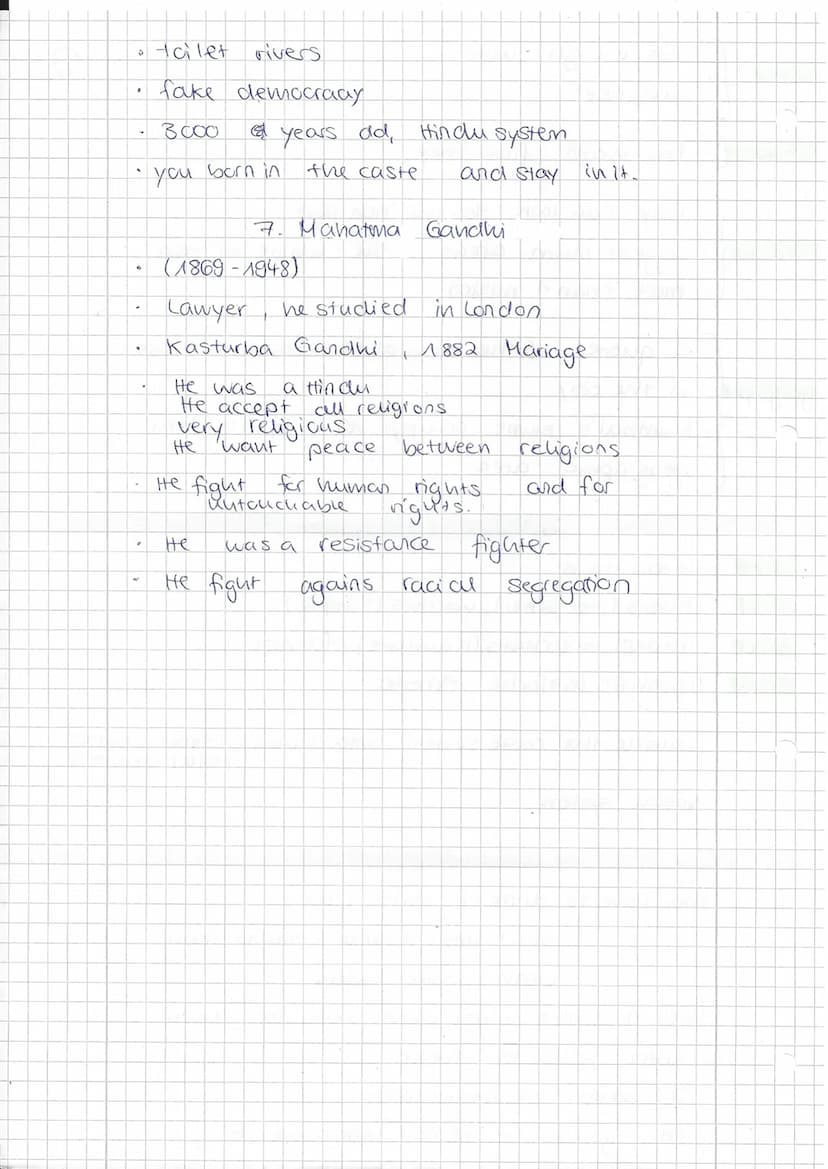 • toilet rivers
• fake democracy
• 3000 years old, Hindu system
• you born in the caste and stay in it.
7. Mahatma Gandhi
• (1869-1948)
• Lawyer, he studied in London
• Kasturba Gandhi, 1882 Mariage
• He was a Hindu
He accept all religions
very religious
He want peace between religions
• He fight for human rights and for
untouchable rights.
• He was a resistance fighter
• He fight agains racial segregation